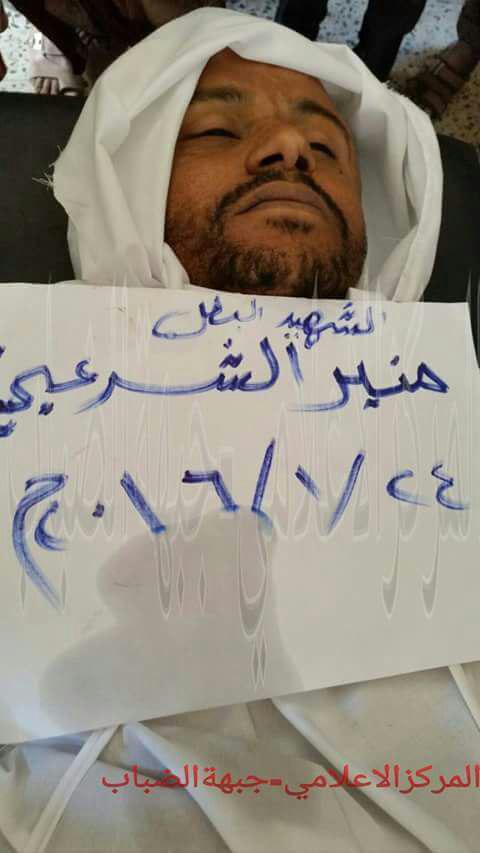 الشهيد البطل
منير الشرعبي
٢٤/٧/٢٠١٦ج
المركز الاعلامي - جبهة الضباب